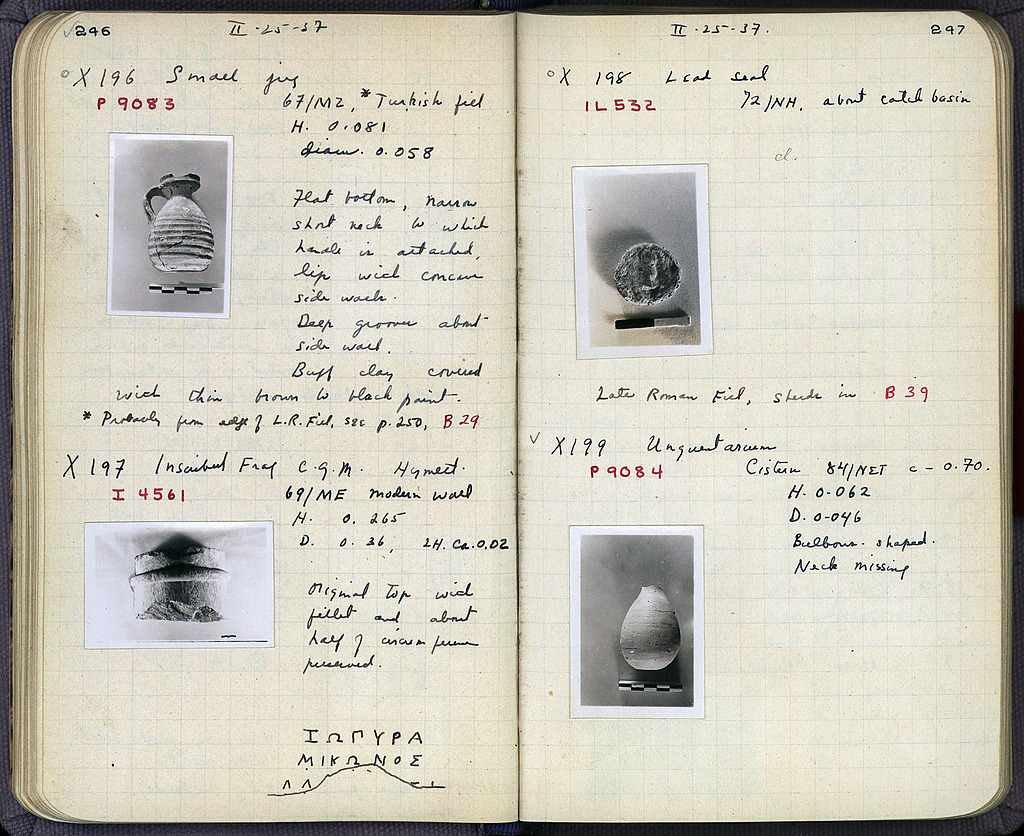 246
II-25-37
X 196 Small jug
P 9083
67/MZ, * Turkish fill
H. 0.081
diam. 0.058
Flat bottom, narrow
short neck to which
handle is attached,
lip with concave
side walls.
Deep grooves about
side wall.
Buff clay covered
with thin brown to black paint.
* Probably from edge of L.R. Fill, see p. 250, B 29
X 197 Inscribed Frag C.G.M. Hymett.
I 4561
69/ME modern wall
H. 0.265
D. 0.36, LH. ca. 0.02
Original top with
fillet and about
half of circumference
preserved.
ΙΩΠΥΡΑ
ΜΙΚΩΝΟΣ
II-25-37.
247
X 198 Lead seal
IL 532
72/NH, about catch basin
cl.
Late Roman Fill, sherds in B 39
X199 Unguentarium
P 9084
Cistern 84/NET c - 0.70.
H. 0.062
D. 0.046
Bulbous shaped.
Neck missing